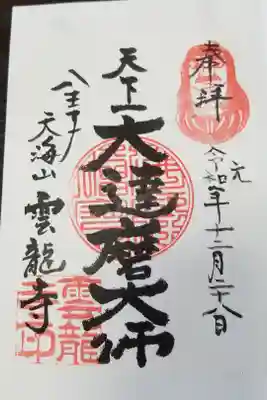 奉拝
令和元年十二月二十八日
天下一大達磨大師
八王子
天海山 雲龍寺
雲龍寺印